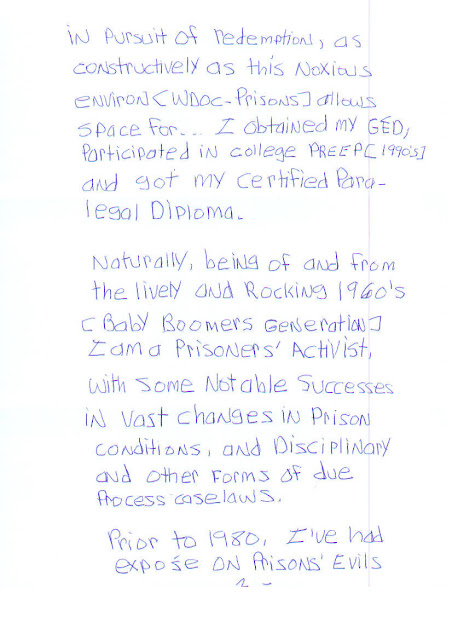 in Pursuit of redemption, as
constructively as this Noxious
environ[WDOC-Prisons] allows
space for... I obtained my GED,
Participated in college PREEP[1990's]
and got my certified Para-
legal Diploma.
Naturally, being of and from
the lively and Rocking 1960's
[Baby Boomers Generation]
I am a Prisoners' Activist,
with some Notable Successes
in vast changes in Prison
conditions, and Disciplinary
and other forms of due
Process caselaws.
Prior to 1980, I've had
expose on Prisons' Evils